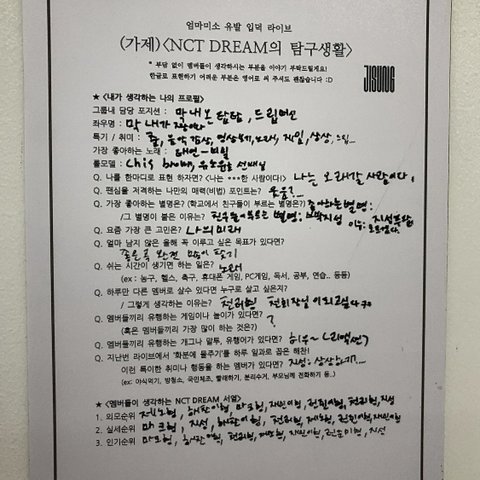 엄마미소 유발 입덕 라이브
(가제)<NCT DREAM의 탐구생활>
* 부담 없이 멤버들이 생각하시는 부분을 이야기 부탁드릴게요!
한글로 표현하기 어려운 부분은 영어로 써 주셔도 괜찮습니다 :D
JISUNG
★ <내가 생각하는 나의 프로필>
그룹내 담당 포지션 : 막내온탑담당, 드립머신
좌우명 : 막 내가
특기 / 취미 : 춤, 음악감상, 영상보기, 노래, 게임, 상상,
가장 좋아하는 노래 : 태연-비밀
롤모델 : chis brown, 유노윤호 선배님
Q. 나를 한마디로 표현 하자면? <나는 ***한 사람이다!> 나는 오래갈 사람이다!
Q. 팬심을 저격하는 나만의 매력(비법) 포인트는? 웃음?...
Q. 가장 좋아하는 별명은?(학교에서 친구들이 부르는 별명은?) 좋아하는별명:
/ 그 별명이 붙은 이유는? 친구들이부르는 별명: 박지성
Q. 요즘 가장 큰 고민은? 나의미래
Q. 얼마 남지 않은 올해 꼭 이루고 싶은 목표가 있다면?
좋은곡
Q. 쉬는 시간이 생기면 하는 일은? 노래
(ex : 농구, 헬스, 축구, 휴대폰 게임, PC게임, 독서, 공부, 연습.. 등등)
Q. 하루만 다른 멤버로 살수 있다면 누구로 살고 싶은지?
/ 그렇게 생각하는 이유는? 천러형
Q. 멤버들끼리 유행하는 게임이나 놀이가 있다면?
(혹은 멤버들끼리 가장 많이 하는 것은?) ?
Q. 멤버들끼리 유행하는 개그나 말투, 유행어가 있다면?
Q. 지난번 라이브에서 '화분에 물주기'를 하루 일과로 꼽은 해찬!
이런 특이한 취미나 행동을 하는 멤버가 있다면? 지성: 상상하기?...
(ex: 야식먹기, 방청소, 국민체조, 빨래하기, 분리수거, 부모님께 전화하기 등..)
★ <멤버들이 생각하는 NCT DREAM 서열>
1. 외모순위 제노형, 해찬이형, 마크형, 재민이형, 런쥔이형, 천러형, 지성
2. 실세순위 마크형, 지성, 해찬이형, 천러형, 제노형, 런쥔이형, 재민이형
3. 인기순위 마크형, 해찬이형, 천러형, 제노형, 재민이형, 런쥔이형, 지성